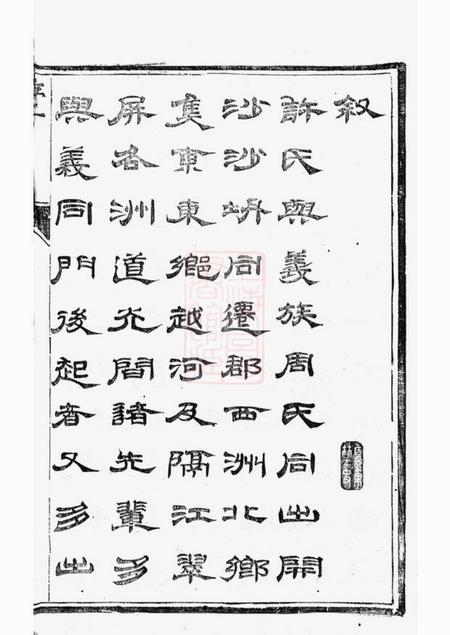 叙
許氏與義族周氏同出開
沙沙坍同遷郡西洲北鄉
焦東東鄉越河及隔江翠
屏各洲道光間諸先輩多
與義同門後起者又多出